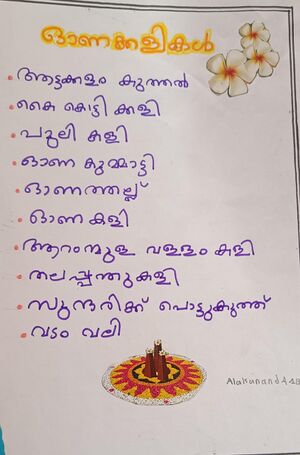 ഓണക്കളികൾ
ആട്ടക്കളം കുത്തൽ
കൈ കൊട്ടി ക്കളി
പുലി കളി
ഓണ കുമ്മാട്ടി
ഓണത്തല്ല്
ഓണ കളി
ആറന്മുള വള്ളം കളി
തലപ്പന്തുകളി
സുന്ദരിക്ക് പൊട്ടുകുത്ത്
വടം വലി